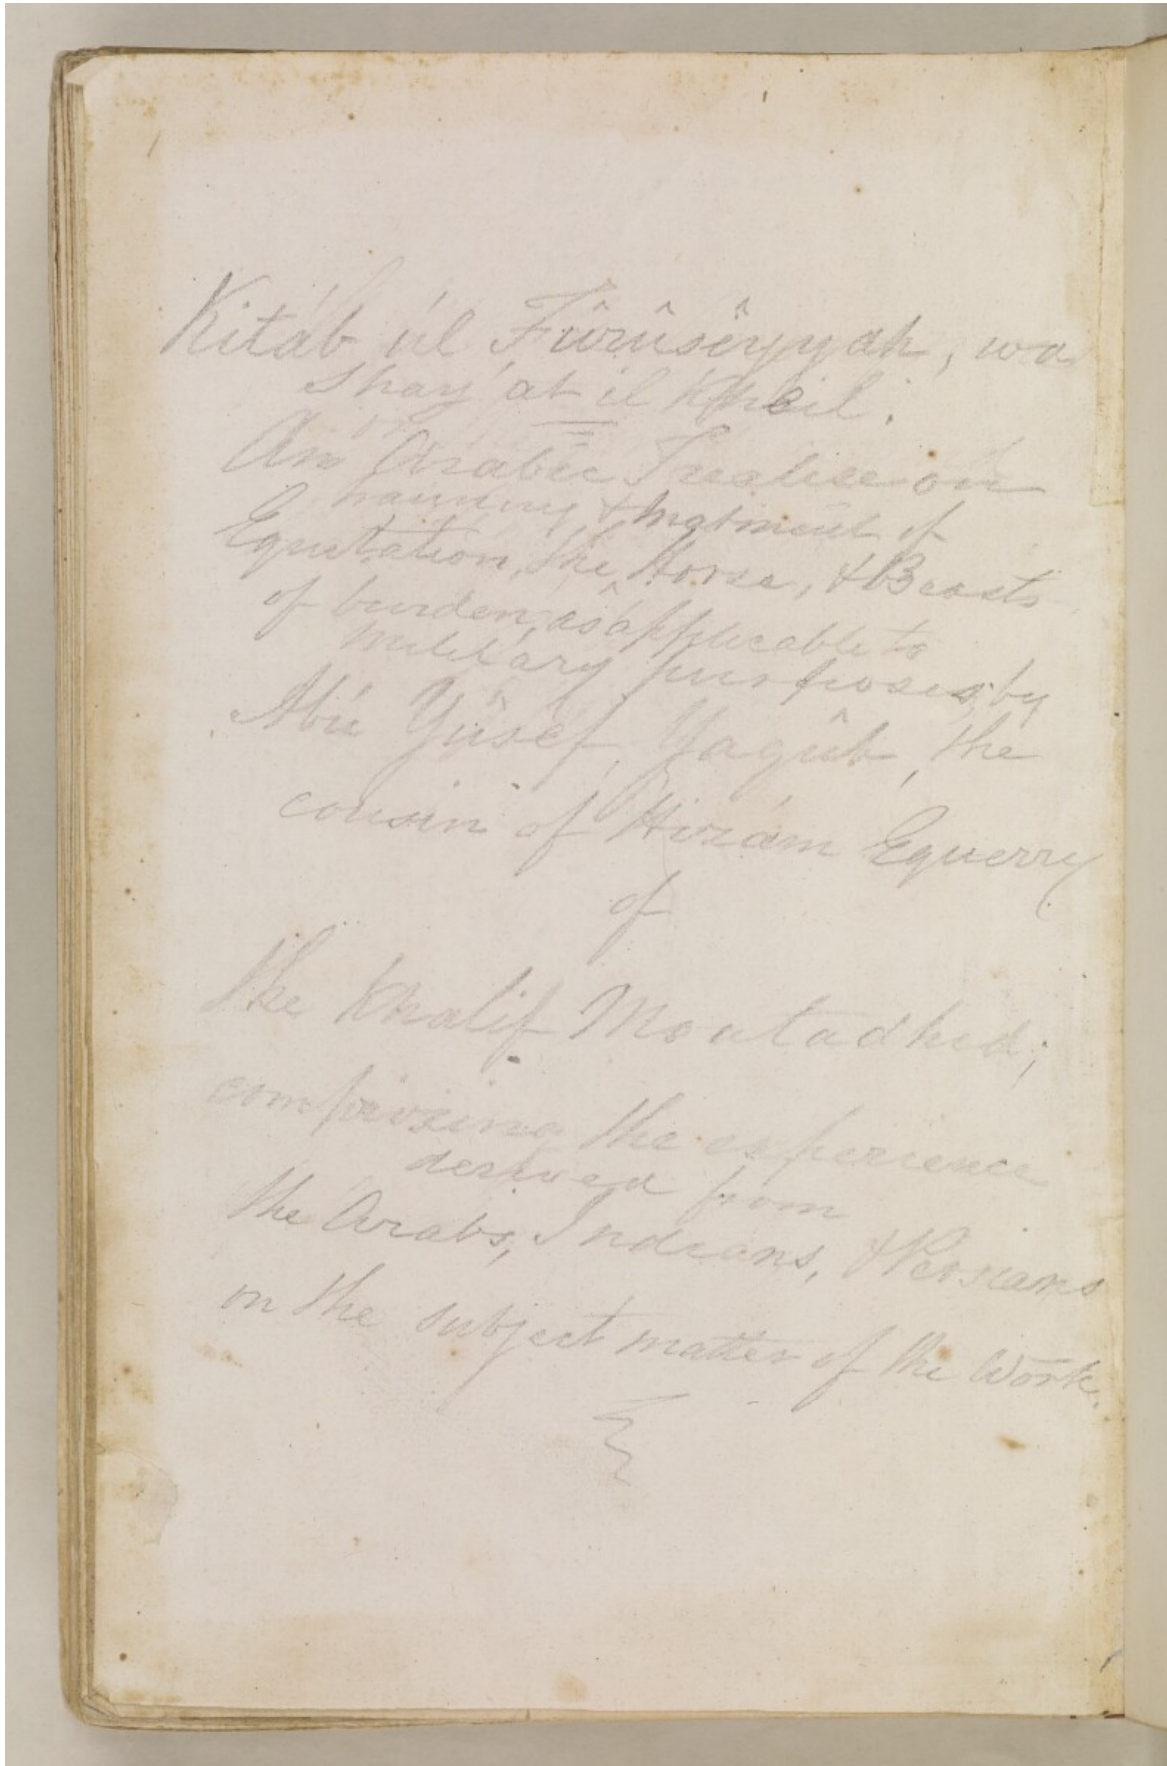 Kitáb úl Fûrûsîyyah, wa
Shay'at il Kheil.
or
An Arabic Treatise on
training & treatment of
Equitation, the Horse, & Beasts
of burden, as applicable to
military purposes, by
Abú Yûsef, Yagûb, the
cousin of Hizám Equerry
of
the Khalif Moutadhed;
comprising the experience
derived from
the Arabs, Indians, & Persians
on the subject matter of the Work.